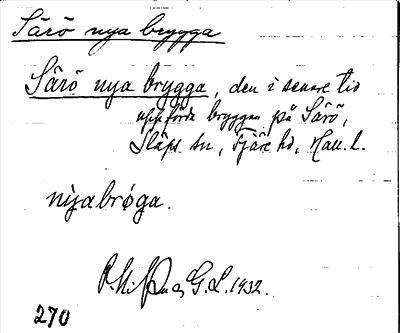 Särö nya brygga
Särö nya brygga, den i senare tid
uppförda bryggan på Särö,
Släps sn, Fjäre hd, Hall. l.
nỳabrøga.
G. L. 1932.
270